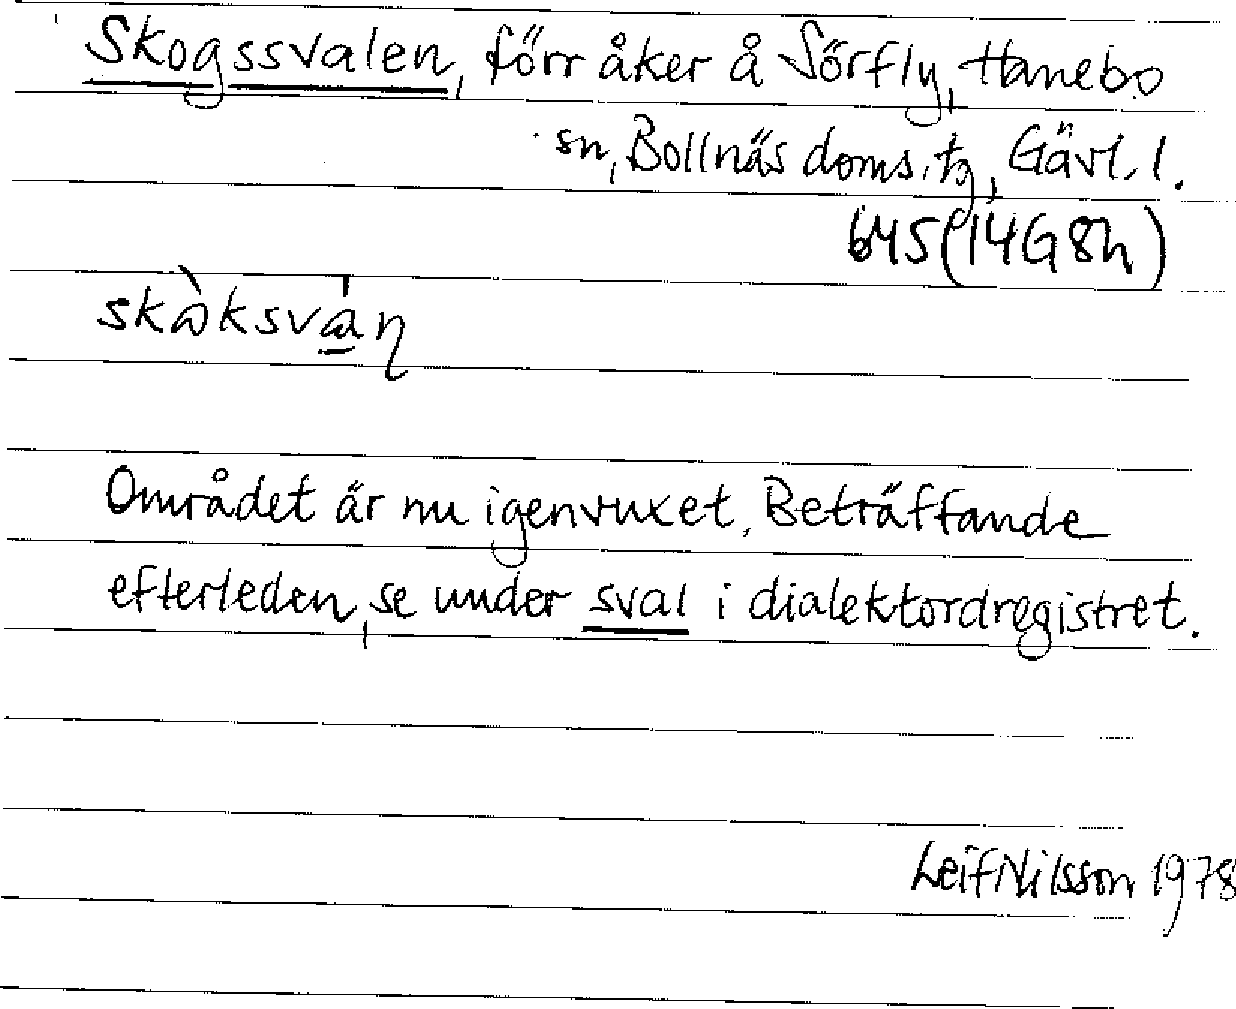 Skogssvalen, förr åker å Sörfly, Hanebo
sn, Bollnäs doms. tg, Gävl. l.
645 (14G 8h)
Området är nu igenvuxet. Beträffande
efterleden, se under sval i dialektordregistret.
Leif Nilsson 1978